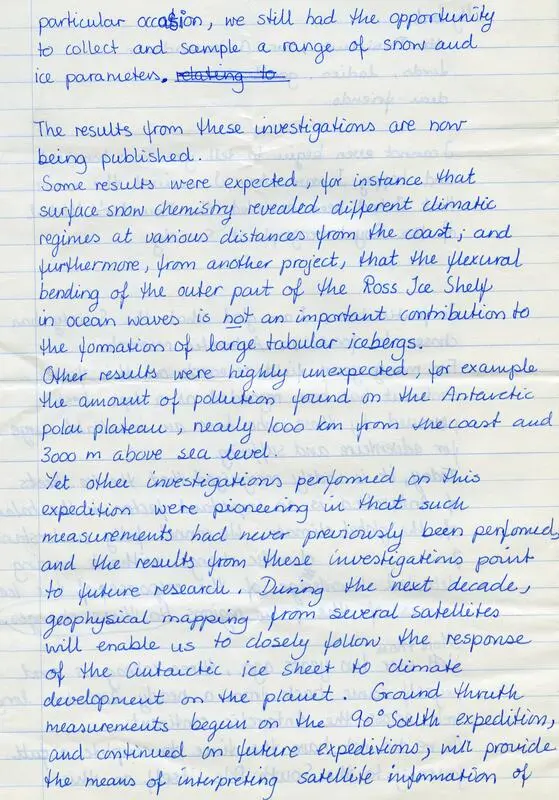 particular occasion, we still had the opportunity
to collect and sample a range of snow and
ice parameters. relating to
The results from these investigations are now
being published.
Some results were expected, for instance that
surface snow chemistry revealed different climatic
regimes at various distances from the coast; and
furthermore, from another project, that the flexural
bending of the outer part of the Ross Ice Shelf
in ocean waves is not an important contribution to
the formation of large tabular icebergs.
Other results were highly unexpected, for example
the amount of pollution found on the Antarctic
polar plateau, nearly 1000 km from the coast and
3000 m above sea level.
Yet other investigations performed on this
expedition were pioneering in that such
measurements had never previously been performed,
and the results from these investigations point
to future research. During the next decade,
geophysical mapping from several satellites
will enable us to closely follow the response
of the Antarctic ice sheet to climate
development on the planet. Ground thruth
measurements begun on the 90° South expedition,
and continued on future expeditions, will provide
the means of interpreting satellite information of